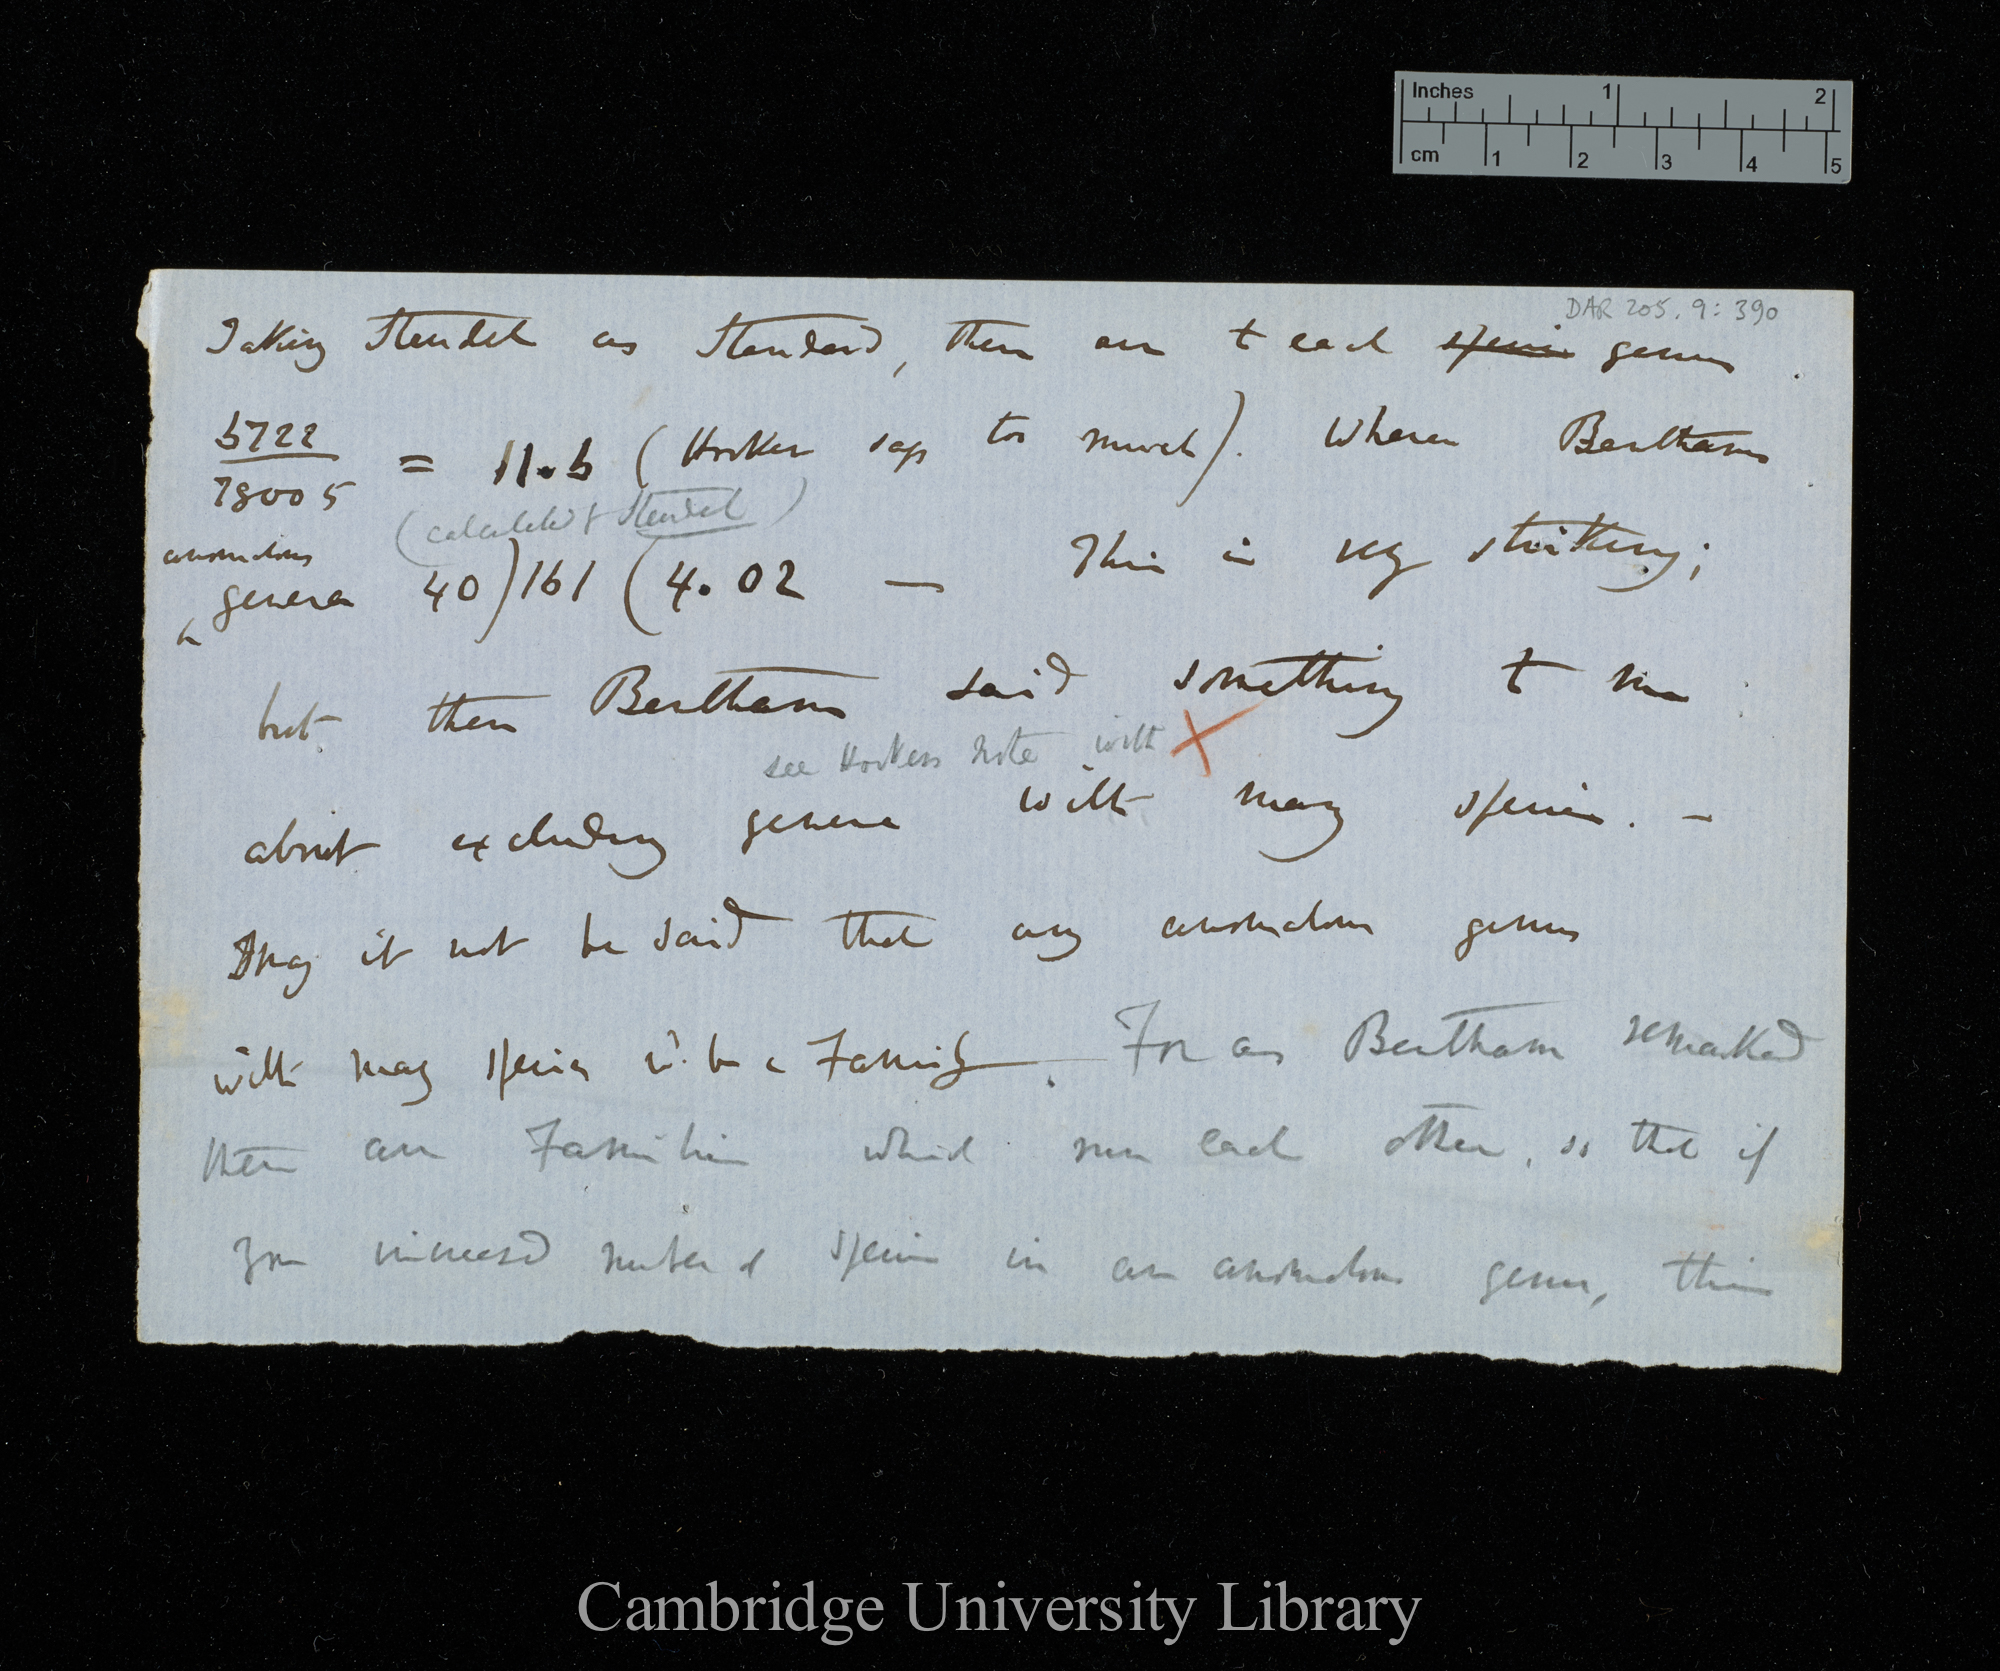 Inches 1 2
cm 1 2 3 4 5
DAR 205. 9: 390
Taking Steudel as Standard, there are to each species genus
6722
78005
= 11.6 (Hooker says too much). Whereas Bentham
(calculated fr Steudel)
anomalous
genera 40)161(4.02 — This is very striking;
but then Bentham said something to me
see Hookers note with X
about excluding genera with many species. —
May it not be said that any anomalous genus
with many species wd. be a Family. For as Bentham remarked
there are Families which run each other, so that if
you increased number of species in an anomalous genus, this
Cambridge University Library